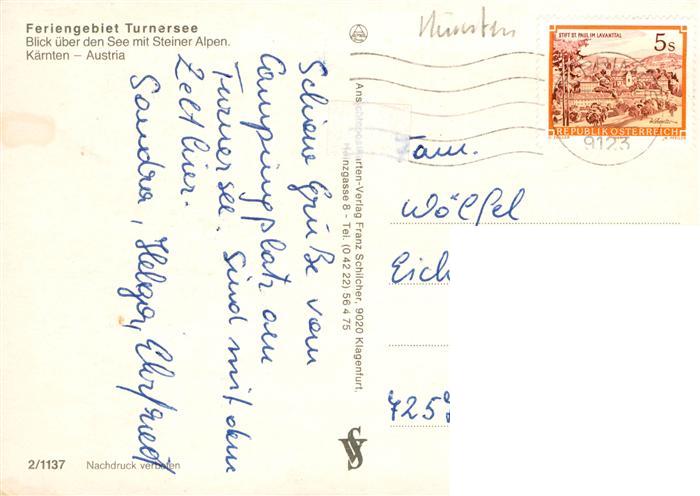 Feriengebiet Turnersee
Blick über den See mit Steiner Alpen.
Kärnten – Austria
Schöne Grüße vom
Campingplatz am
Turnersee. Sind mit dem
Zelt hier.
Sandra, Helga, Ehrfried
2/1137 Nachdruck verboten
Ansichtspostkarten-Verlag Franz Schilcher, 9020 Klagenfurt,
Heinzgasse 8 - Tel. (0 42 22) 56 4 75
STIFT ST. PAUL IM LAVANTTAL
5 S
REPUBLIK ÖSTERREICH
9123
Fam.
Wölfel
Eich
725